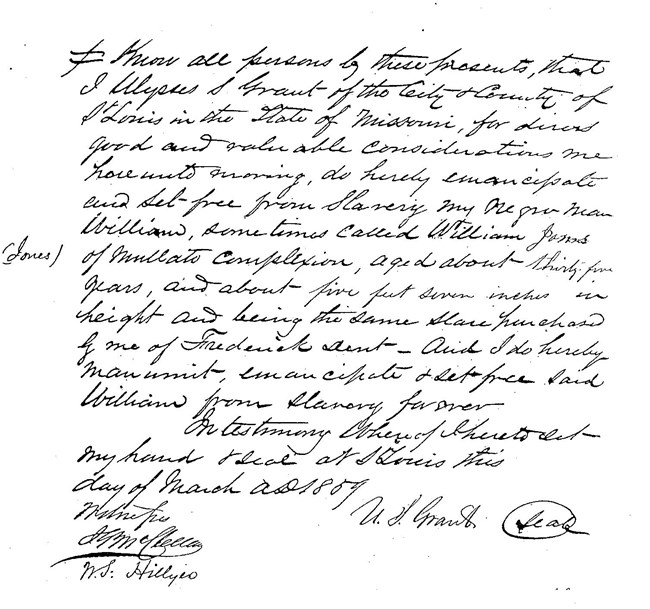 Know all persons by these presents, that
I Ulysses S Grant of the City & County of
St Louis in the State of Missouri, for divers
good and valuable considerations me
hereunto moving, do hereby emancipate
and set free from Slavery my Negro man
William, sometimes called William Jones
(Jones)
of Mullato complexion, aged about thirty-five
years, and about five feet seven inches in
height and being the same slave purchased
by me of Frederick Dent - And I do hereby
manumit, emancipate & set free said
William from slavery forever
In testimony Whereof I hereto set
my hand & seal at St Louis this
day of March A.D. 1859
Witnesses
U. S. Grant (Seal)
J G McClellan
W.S. Hillyer